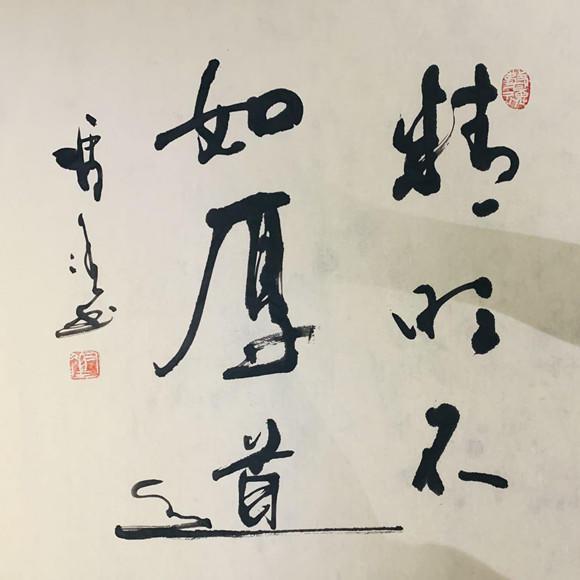 精明不
如厚道